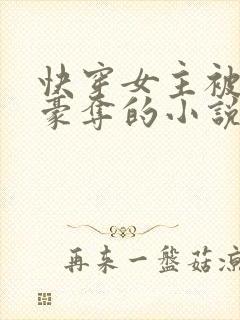 快穿女主被
豪奪的小說
再来一盤菇凉